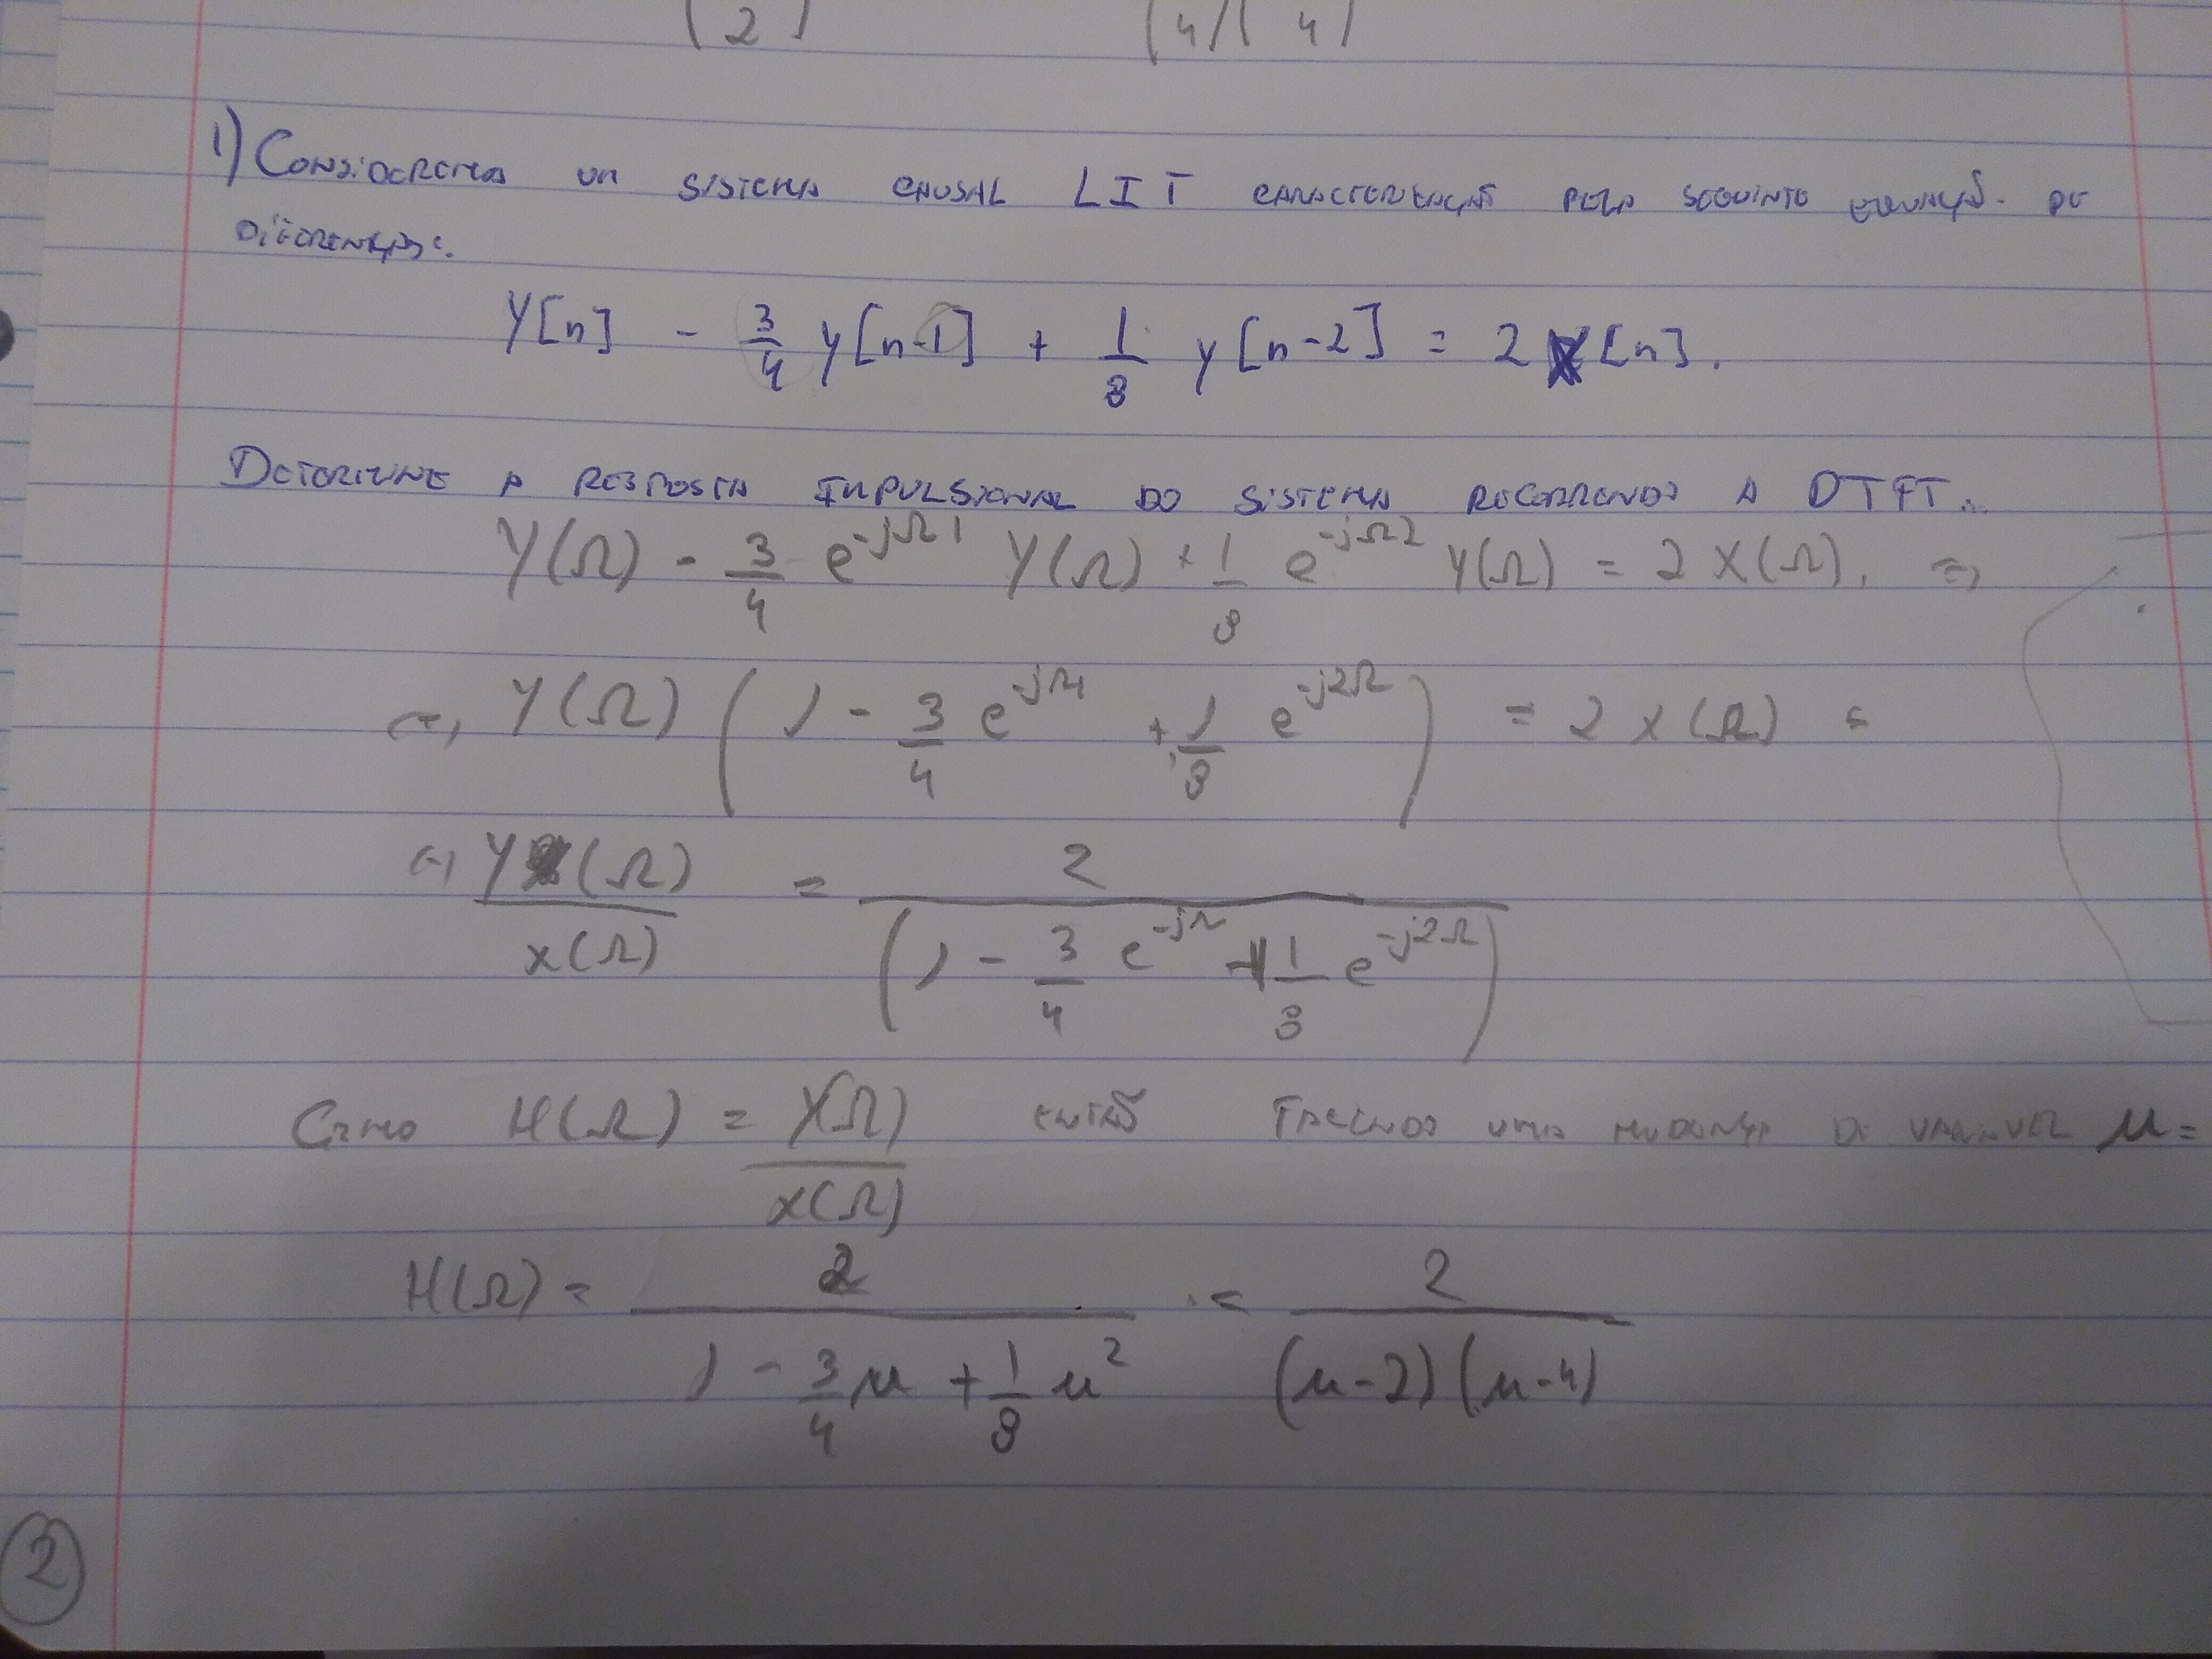 (2) (4)( 4)
1) Consideremos um sistema causal LIT caracterização pela seguinte equação de
diferenças:
Y[n] - 3/4 y[n-1] + 1/8 y[n-2] = 2 X[n].
Determine a resposta impulsional do sistema recorrendo a DTFT.
Y(Ω) - 3/4 e^{-jΩ1} Y(Ω) + 1/8 e^{-jΩ2} Y(Ω) = 2 X(Ω). =>
Y(Ω) ( 1 - 3/4 e^{-jΩ1} + 1/8 e^{-j2Ω} ) = 2 X(Ω) =
Y(Ω)/X(Ω) = 2/(1 - 3/4 e^{-jΩ} + 1/8 e^{-j2Ω})
Como H(Ω) = Y(Ω)/X(Ω) então fazendo uma mudança de variavel μ=
H(Ω) = 2/(1 - 3/4 μ + 1/8 μ²) = 2/((μ-2)(μ-4))
2